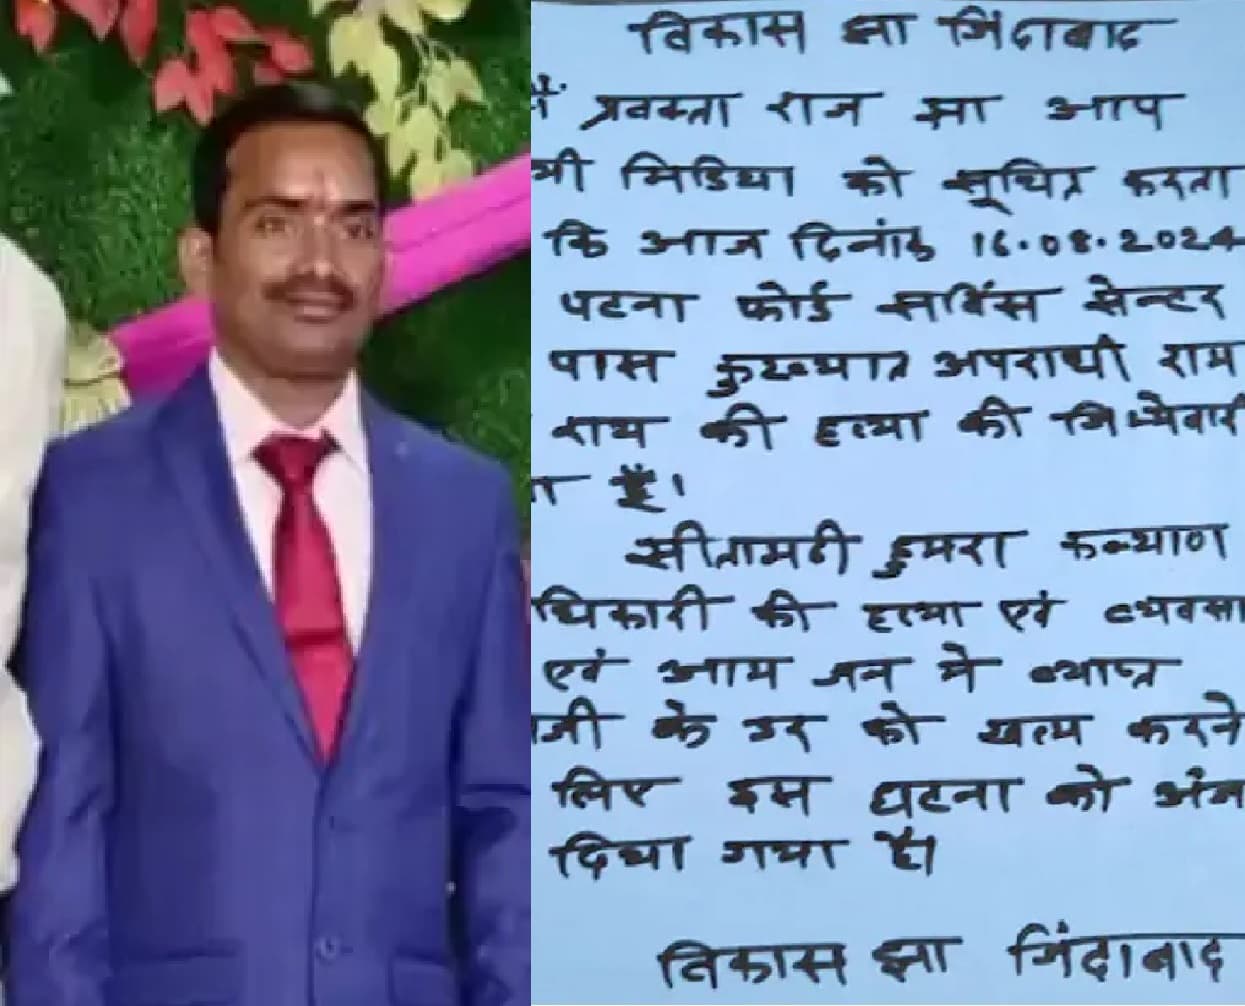 विकास झा जिंदाबाद
मैं प्रवक्ता राज झा आप
भी मिडिया को सूचित करता
कि आज दिनांक 16.08.2024
पटना फोर्ड सर्विस सेन्टर
पास कुख्यात अपराधी राम
राय की हत्या की जिम्मेवारी
ता हैं।
सीतामढी डुमरा कल्याण
धिकारी की हत्या एवं व्यवसा
एवं आम जन मे व्याप्त
जी के डर को खत्म करने
लिए इस घटना को अंज
दिया गया है।
विकास झा जिंदाबाद